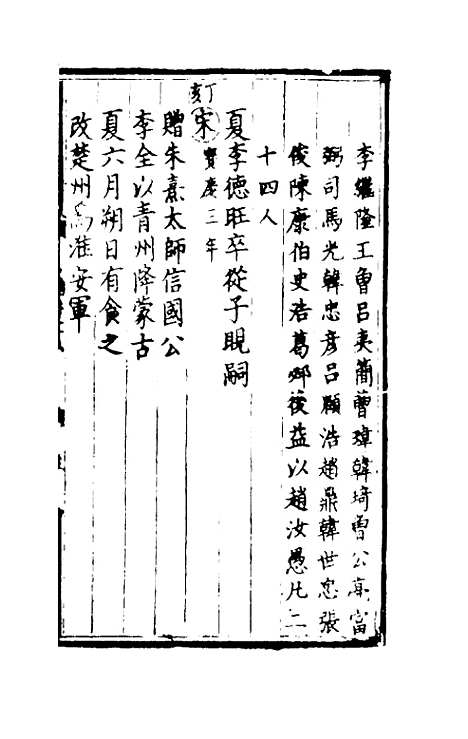 李繼隆王曾呂夷簡曹瑋韓琦曾公亮富
弼司馬光韓忠彥呂頤浩趙鼎韓世忠張
俊陳康伯史浩葛邲後益以趙汝愚凡二
十四人
夏李德旺卒從子睍嗣
丁亥
宋寶慶三年
贈朱熹太師信國公
李全以青州降蒙古
夏六月朔日有食之
改楚州爲淮安軍